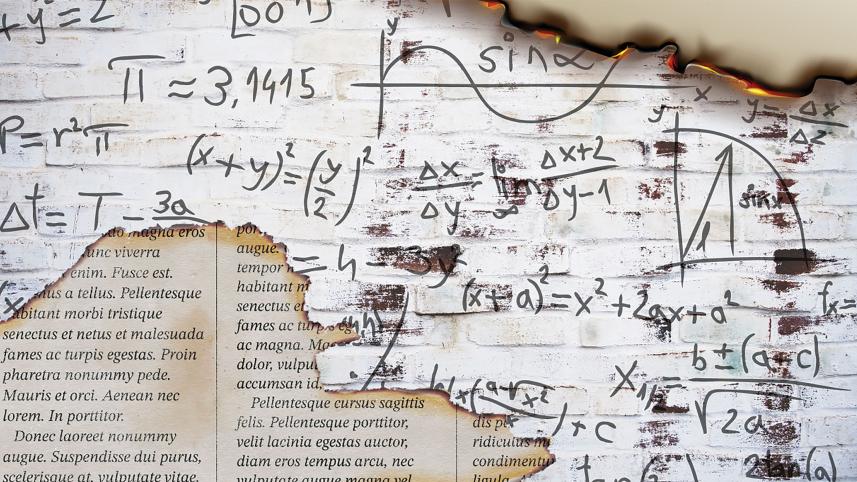 +y²=2
π ≈ 3,1415
sin α
y
x
P=r²π
(x+y)²=(y/2)²
Δx/Δy = lim ∞ Δx+2/Δy-1
y=Δx/Δz
y
sinx
Δt=T-3a
=h-3y²
(x+a)²=x²+2ax+a²
fx=
X₁/₂=b±(a+c)/√2a
+c
2tan(a)
do magna eros
unc viverra
enim. Fusce est.
nus a tellus. Pellentesque
abitant morbi tristique
senectus et netus et malesuada
fames ac turpis egestas. Proin
pharetra nonummy pede.
Mauris et orci. Aenean nec
lorem. In porttitor.
Donec laoreet nonummy
augue. Suspendisse dui purus,
scelerisque at, vulputate vitae,
por
augue.
tempor
habitant m
senectus et
fames ac turpis eg
ac magna. Ma
dolor, vulpu
accumsan id,
Pellentesque cursus sagittis
felis. Pellentesque porttitor,
velit lacinia egestas auctor,
diam eros tempus arcu, nec
vulputate augue magna vel
dis p
ridiculus m
condimentu
ligula